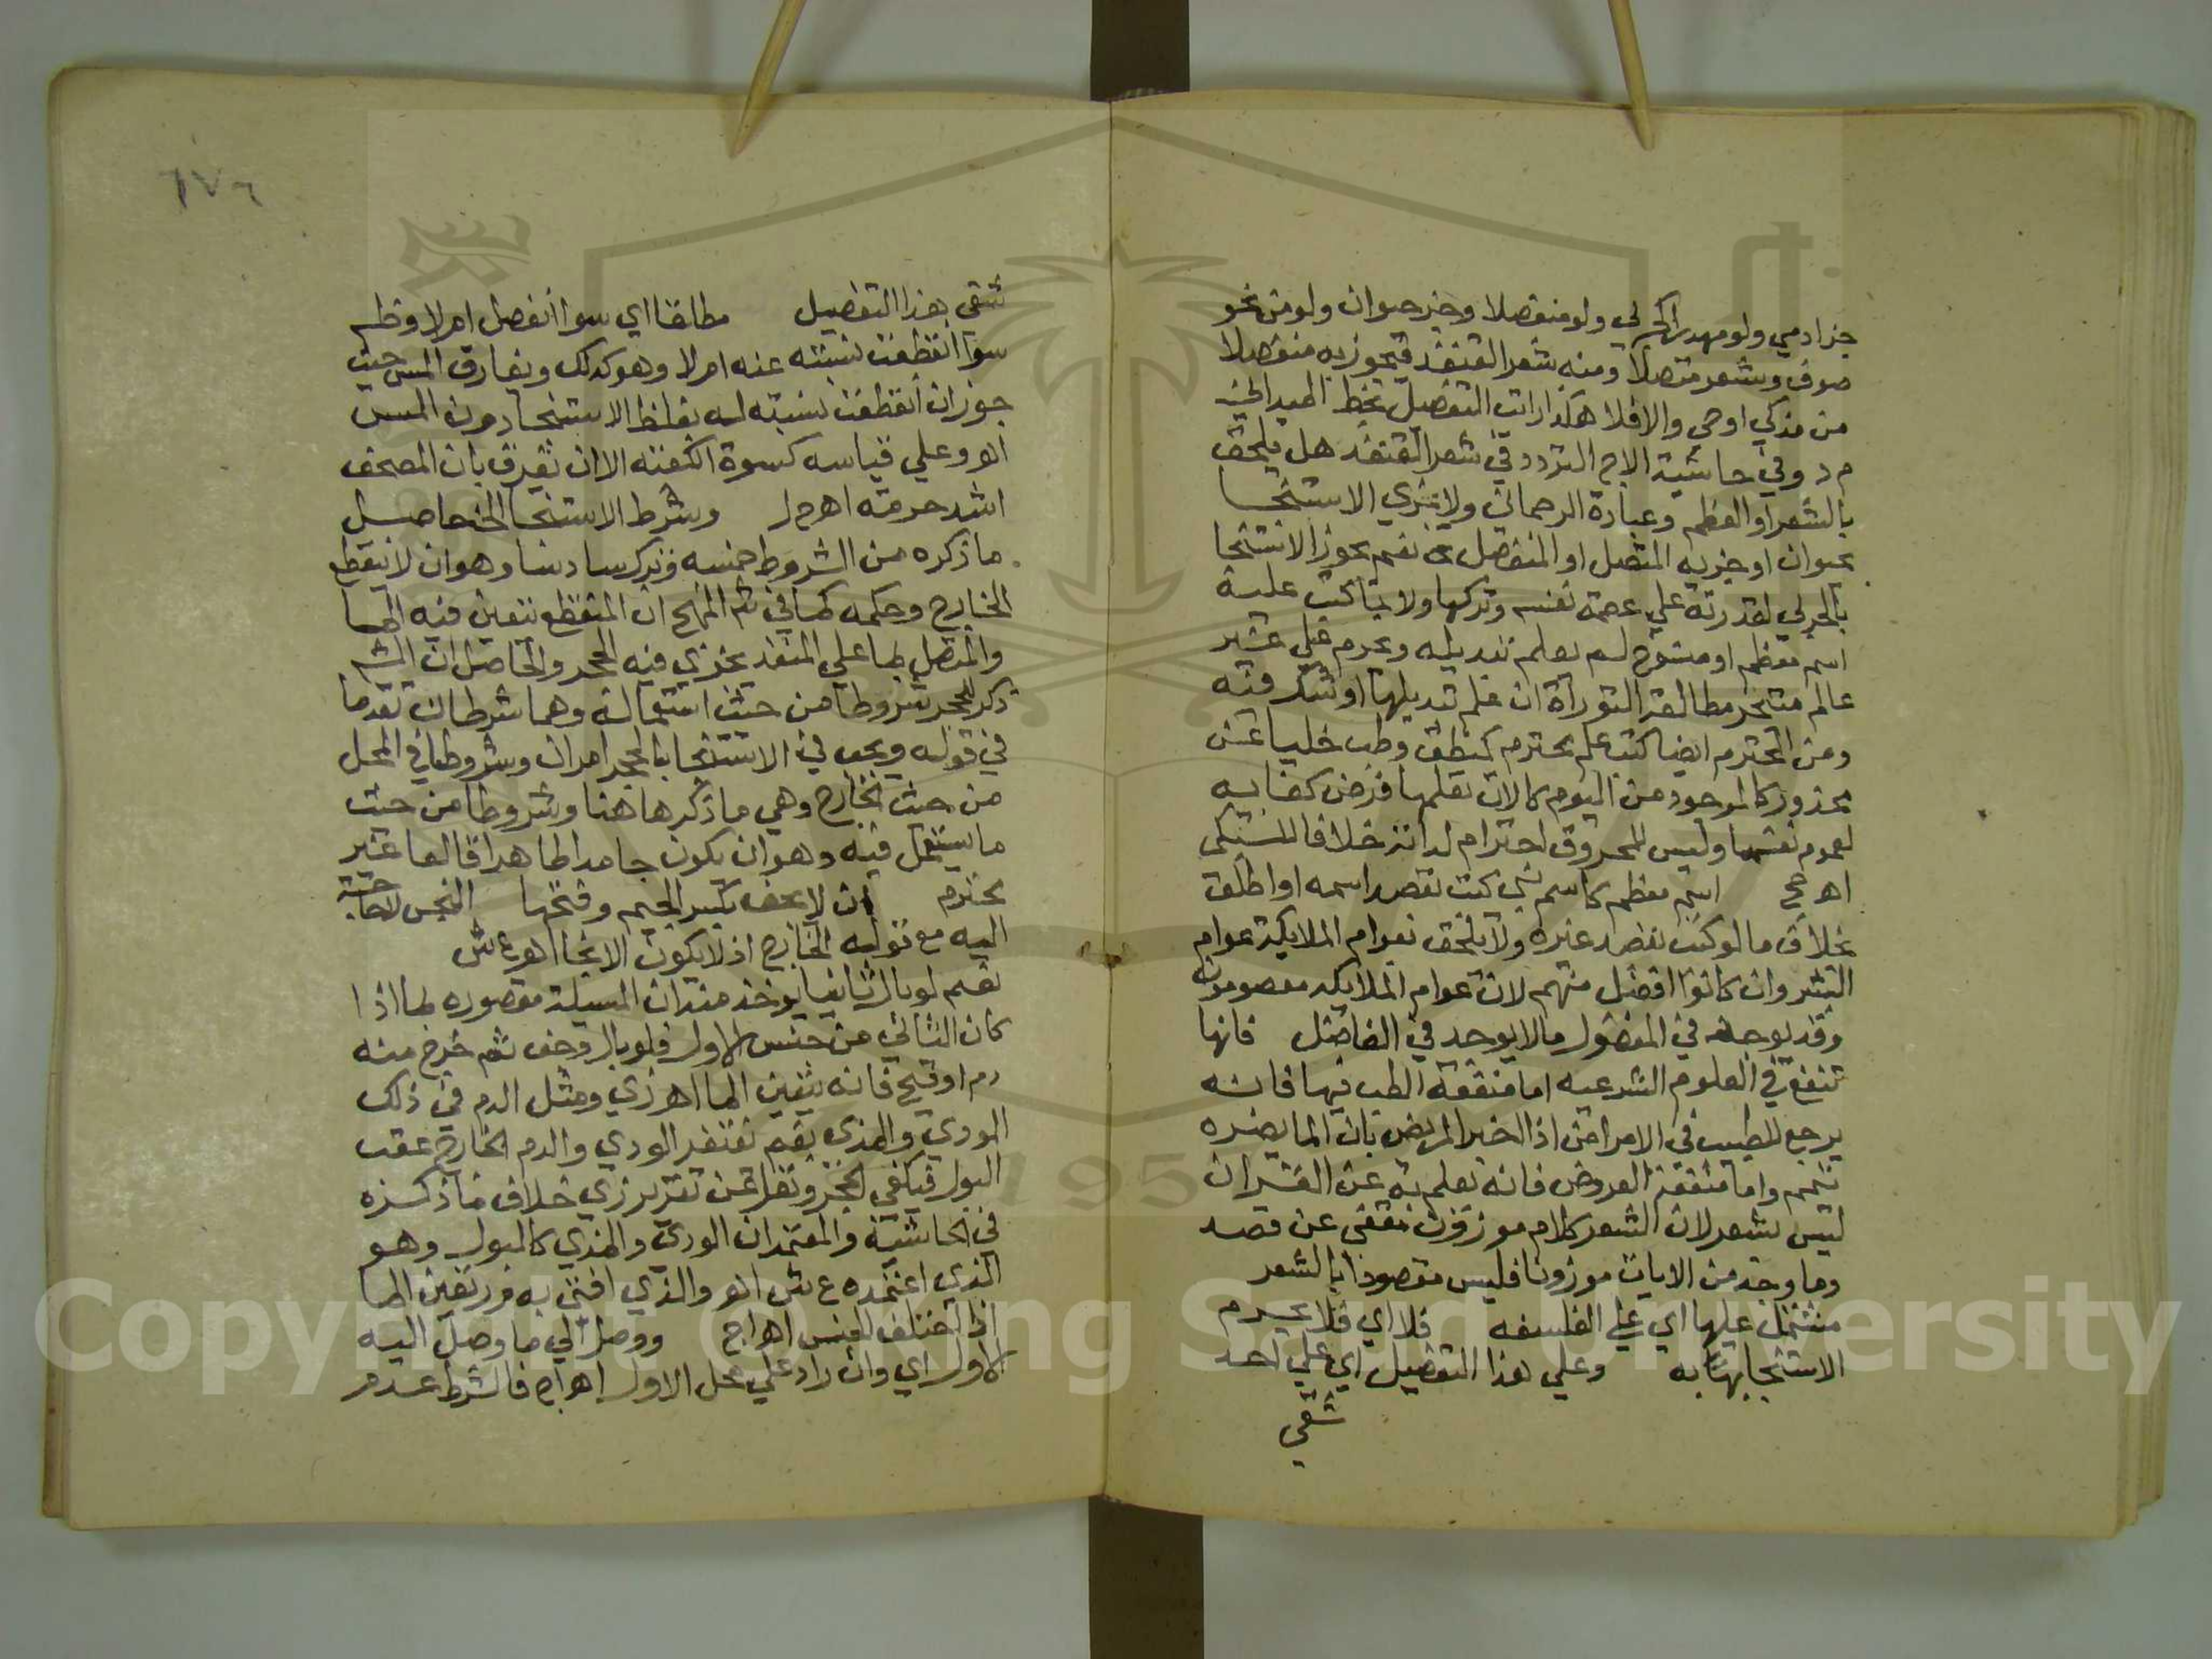 جزادمي ولو مهدرا كحربي ولو منفصلا وجزحيوان ولو من نحو
صوف وشعر متصلا ومنه شعر القنفد فيجوز به منفصلا
من مذكي او حي والا فلا هكذا رايت التفصيل بخط الميداني
م د وفي حاشية الاج التردد في شعر القنفد هل يلحق
بالشعر او العظم وعبارة الرحماني ولا يجزي الاستنجا
بحيوان او جزيه المتصل او المنفصل نعم يجوز الاستنجا
بالحربي لقدرته علي عصمة نفسه وتركها ولا بما كتب عليه
اسم معظم او منسوخ لم يعلم تبديله ويحرم علي غير
عالم متبحر مطالعة التوراة ان علم تبديلها او شك فيه
ومن المحترم ايضا كتب علم محترم كمنطق وطب خليا عن
محذور كالموجود من اليوم كالان تعلمها فرض كفايه
لعموم نفعها وليس للمحروق احترام لذاته خلافا للسبكي
اهـ ج اسم معظم كاسم نبي كتب بقصد اسمه او اطلق
بخلاف ما لو كتب بقصد غيره ولا يلحق بعوام الملايكة عوام
البشر وان كانوا افضل منهم لان عوام الملايكة معصومون
وقد يوجد في المفضول ما لا يوجد في الفاضل فانها
تنفع في العلوم الشرعيه اما منفعة الطب فيها فانه
يرجع للطبيب في الامراض اذا اخبر المريض بان الما يضره
تيمم واما منفعة العروض فانه يعلم به عن القران
ليس بشعر لان الشعر كلام موزون مقفى عن قصد
وما وجد من الايات موزونا فليس مقصودا بالشعر
مشتمل عليها اي علي الفلسفه فلا اي فلا يحرم
الاستنجا بها به وعلي هذا التفصيل اي علي احد
شقي
٦٧٦
شقي هذا التفصيل مطلقا اي سوا انفصل ام لا وظم
سوا انقطعت نسبته عنه ام لا وهو كذلك ويفارق المس حيث
جوزان انقطعت نسبته له بغلظ الاستنجا دون المس
اهـ وعلي قياسه كسوة الكعبه الا ان يفرق بان المصحف
اشد حرمة اهـ م ر وشرط الاستنجا الخ حاصل
ما ذكره من الشروط خمسه ونزيد سادسا وهو ان لا يتقطع
الخارج وحكمه كما في شم المنهج ان المتقطع يتعين فيه الما
والمتصل بما علي المنفذ يجزي فيه الحجر والحاصل ان الشم
ذكر للحجر شروطا من حيث استعماله وهما شرطان تقدما
في قوله ويجب في الاستنجا بالحجر امران وشروطا في المحل
من حيث الخارج وهي ما ذكرها هنا وشروطا من حيث
ما يستعمل فيه وهو ان يكون جامدا طاهرا قالعا غير
محترم ان لا يجف بكسر الجيم وفتحها النجس لحاجة
اليه مع توليه الخارج اذ لا يكون الانجا اهـ ع ش
نعم لو بال ثانيا يوخذ منه ان المسيلة مقصوره بما اذا
كان الثاني من جنس الاول فلو بال وجف ثم خرج منه
دم او قيح فانه يتعين الما اهـ زي ومثل الدم في ذلك
الودي والمذي نعم يغتفر الودي والدم الخارج عقب
البول فيكفي الحجر ونقل عن تقرير زي خلاف ما ذكره
في الحاشية والمعتمد ان الودي والمذي كالبول وهو
الذي اعتمده ع ش اهـ والذي افتى به م ر تعين الما
اذا اختلف الجنس اهـ اج ووصل الي ما وصل اليه
الاول اي وان زاد علي محل الاول اهـ اج فالشرط عدم